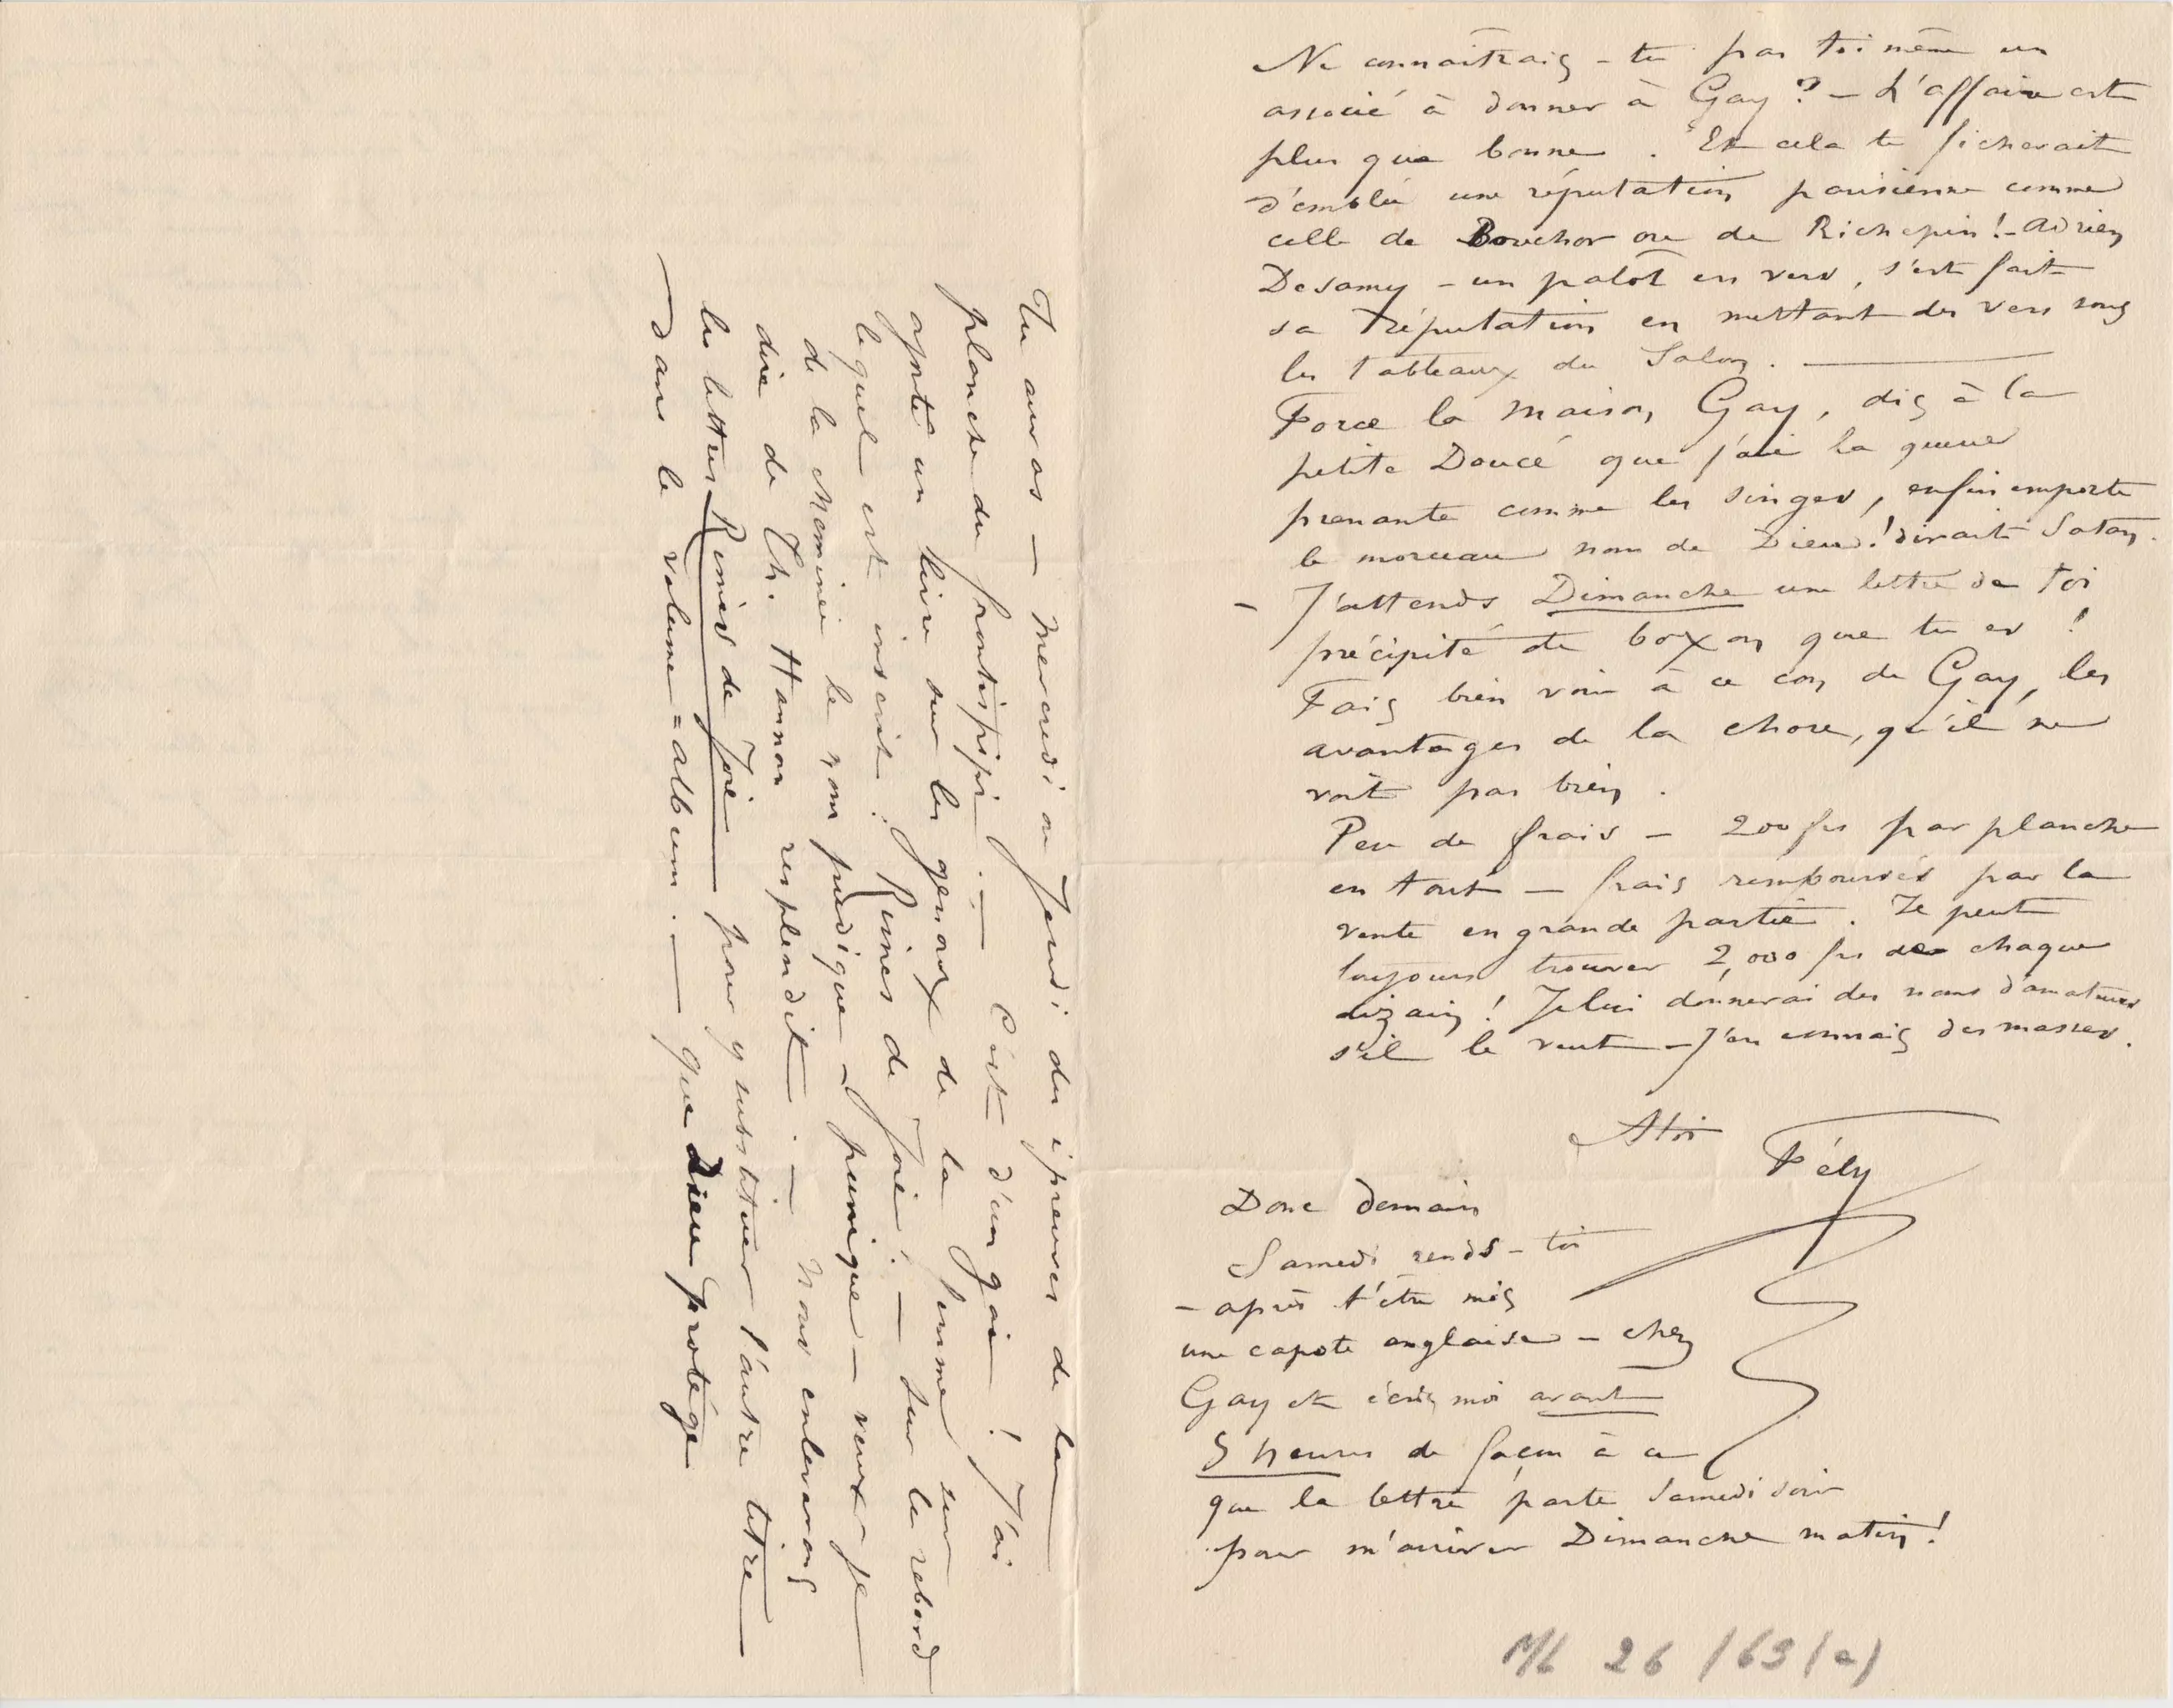 Ne connaîtrais-tu pas toi même un
associé à donner à Gay ? – L'affaire est
plus que bonne. Et cela te ficherait
d'emblée une réputation parisienne comme
celle de Bouchor ou de Richepin ! – Adrien
Desamy – un palôt en vers, s'est fait
sa réputation en mettant des vers sous
les tableaux du Salon. —
Force la maison Gay, dis à la
petite Doucé que j'ai la queue
prenante comme les singes, enfin emporte
le morceau nom de Dieu ! dirait Satan.
– J'attends Dimanche une lettre de toi
précipité de boxon que tu es !
Fais bien voir à ce con de Gay, les
avantages de la chose, qu'il ne
voit pas bien.
Peu de frais – 200 frs par planche
en tout – frais remboursés par la
vente en grande partie. Je peut
toujours trouver 2,000 frs de chaque
dizain ! Je lui donnerai des noms d'amateurs
s'il le veut – J'en connais des masses.
A toi
Fély
Donc demain
Samedi rends-toi
– après t'être mis
une capote anglaise – chez
Gay et écris moi avant
5 heures de façon à ce
que la lettre parte Samedi soir
pour m'arriver Dimanche matin !
Tu auras – Mercredi ou Jeudi des épreuves de la
planche du frontispipi. — C'est d'un gai ! J'ai
ajouté un livre sur les genoux de la femme sur
lequel est inscrit : Rimes de Joie ! — sur le rebord
de la Meminée le nom pudique – punique – veux-je
dire de Th. Hannon resplendit. — Nous enlèverons
les lettres Rimes de Joie pour y substituer l'autre titre
— dans le volume = album. — Que Dieu protège
ML 26 /63 (a)